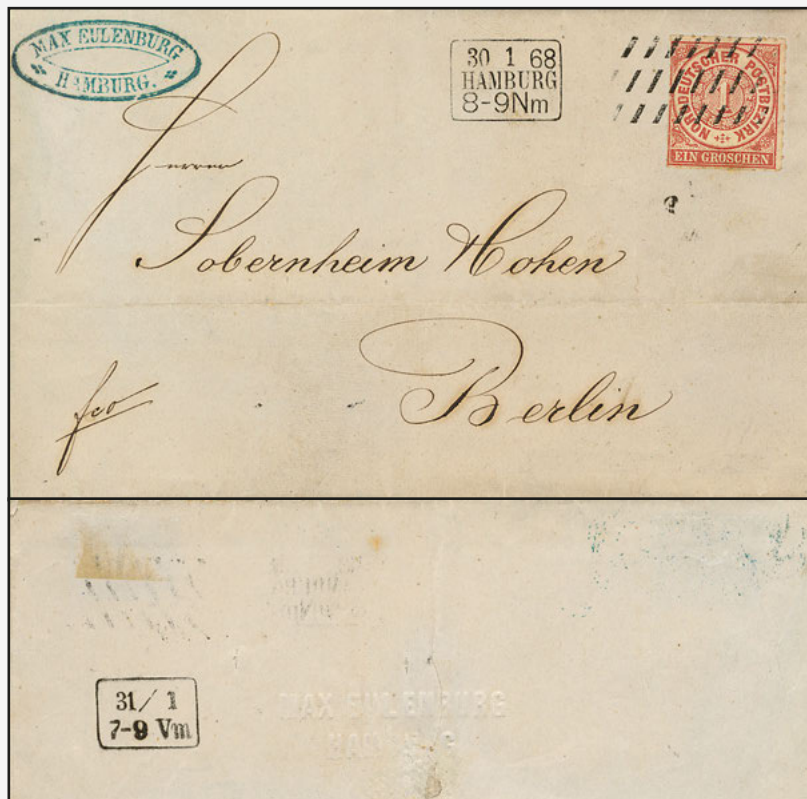 MAX EULENBURG
HAMBURG.
30 1 68
HAMBURG
8-9Nm
NORDDEUTSCHER POSTBEZIRK
1
EIN GROSCHEN
Herren
Sobernheim Hohen
Berlin
fco
31/ 1
7-9 Vm
MAX EULENBURG
HAMBURG